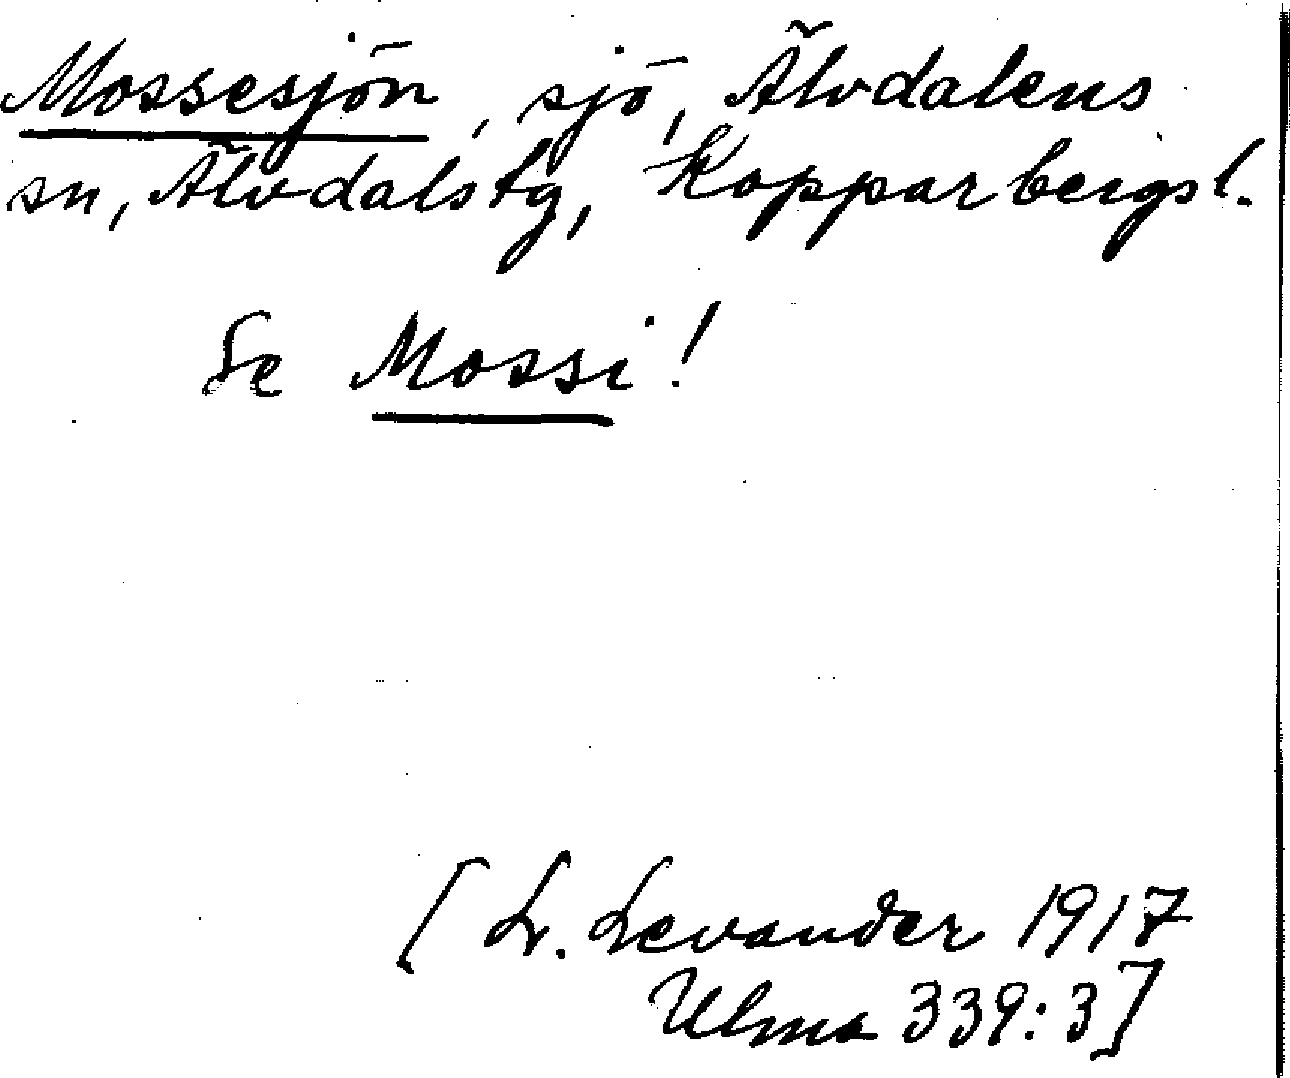 Mossesjön, sjö, Älvdalens
sn, Älvdalstg, Kopparbergsl.
Se Mossi!
[L. Levander 1917
Ulma 339:3]